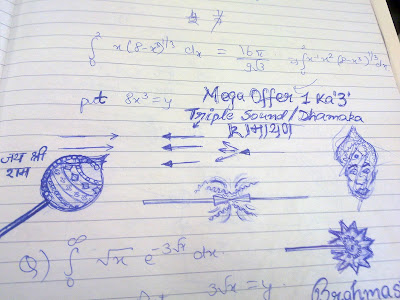 ∫₀² x(8-x³)^{1/3} dx = 16π/9√3 ⇒ ∫₀² x⁻¹ x² (8-x³)^{1/3} dx
put 8x³ = y
Mega Offer 1 Ka '3'
Triple Sound/Dhamaka
रामायण
जय श्री
राम
Q) ∫₀^∞ √x e^{-3√x} dx.
3√x = y.
Brahmas